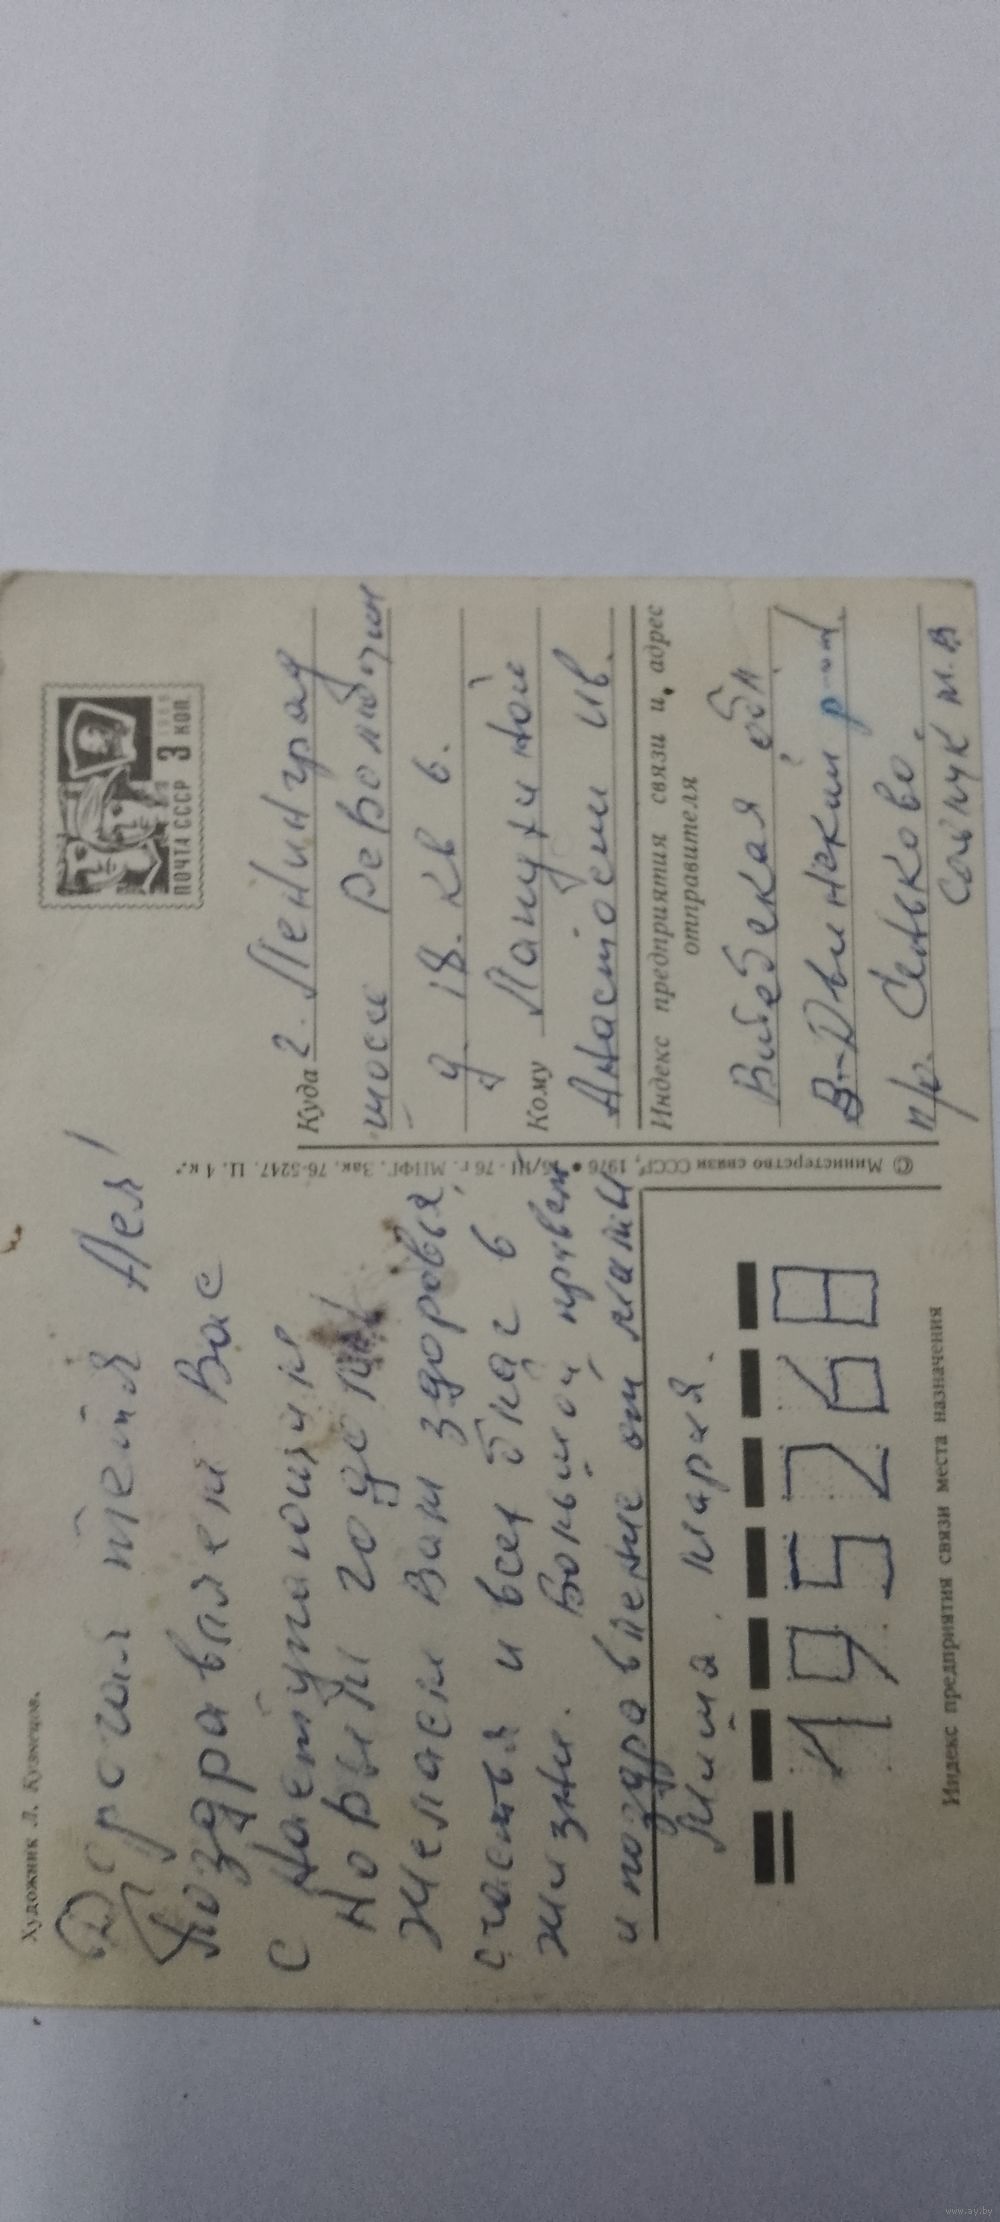 Художник Л. Кузнецов.
Дорогая тетя Ася!
Поздравляем Вас
с Наступающим
Новым годом!
Желаем Вам здоровья,
счастья и всех благ в
жизни. Большой привет
и поздравление от мамы
Миша. Мария.
195268
Индекс предприятия связи места назначения
© Министерство связи СССР, 1976 • 15/III-76 г. МПФГ. Зак. 76-5247. Ц. 4 к.
ПОЧТА СССР 3 КОП.
Куда г. Ленинград
шоссе Революции
д. 18. кв 6.
Кому Лапухиной
Анастасии Ив.
Индекс предприятия связи и адрес
отправителя
Витебская обл
В-Двинский р-он
п/о. Сеньково.
М.В
www.ay.by